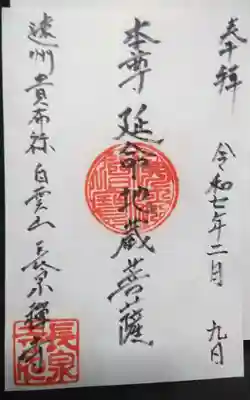 奉拝 令和七年二月 九日
本尊 延命地蔵菩薩
遠州貴布祢 白雲山 長泉禅寺
長泉